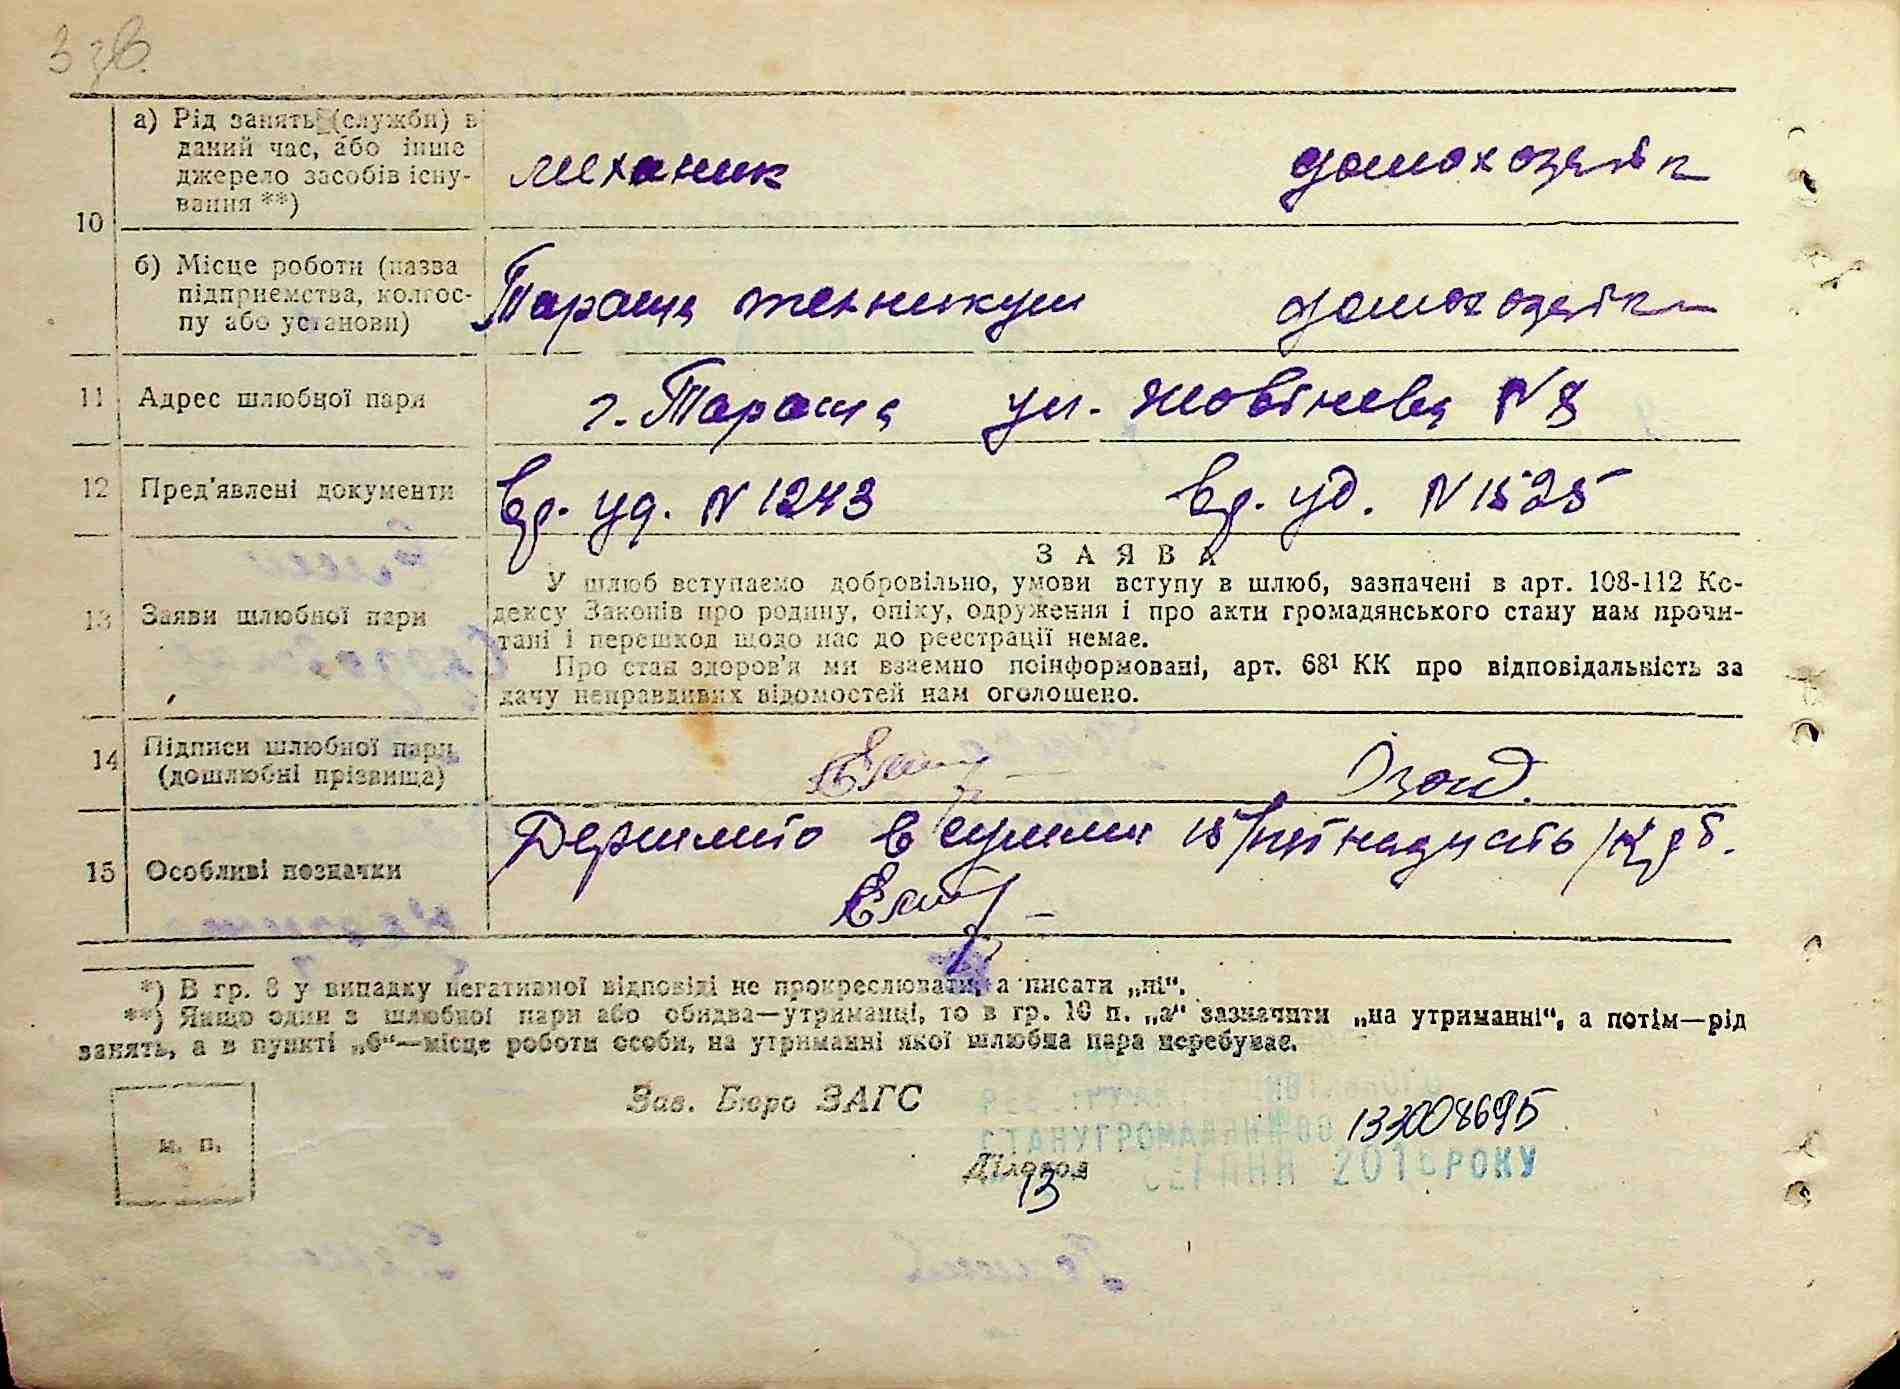 3 зв.
а) Рід занять (служби) в
даний час, або інше
джерело засобів існу-
вання **)
механик домохозяйк
10
б) Місце роботи (назва
підприємства, колгос-
пу або установи)
Тараща техникум домохозяйк
11 Адрес шлюбної пари г. Тараща ул. Жовтнева N 8
12 Пред'явлені документи вр. уд. N 1243 вр. уд. N 1525
ЗАЯВА
У шлюб вступаємо добровільно, умови вступу в шлюб, зазначені в арт. 108-112 Ко-
дексу Законів про родину, опіку, одруження і про акти громадянського стану нам прочи-
тані і перешкод щодо нас до реєстрації немає.
13 Заяви шлюбної пари
Про стан здоров'я ми взаємно поінформовані, арт. 68¹ КК про відповідальність за
дачу неправдивих відомостей нам оголошено.
14 Підписи шлюбної пари
(дошлюбні прізвища)
15 Особливі позначки
в сумми 15
*) В гр. 8 у випадку негативної відповіді не прокреслювати, а писати „ні“.
**) Якщо один з шлюбної пари або обидва—утриманці, то в гр. 10 п. „а“ зазначити „на утриманні“, а потім—рід
занять, а в пункті „б“—місце роботи особи, на утриманні якої шлюбна пара перебуває.
Зав. Бюро ЗАГС
м. п.
133008695
СТАНУ ГРОМАДЯН
Діловод
СЕРПНЯ 201 РОКУ
13